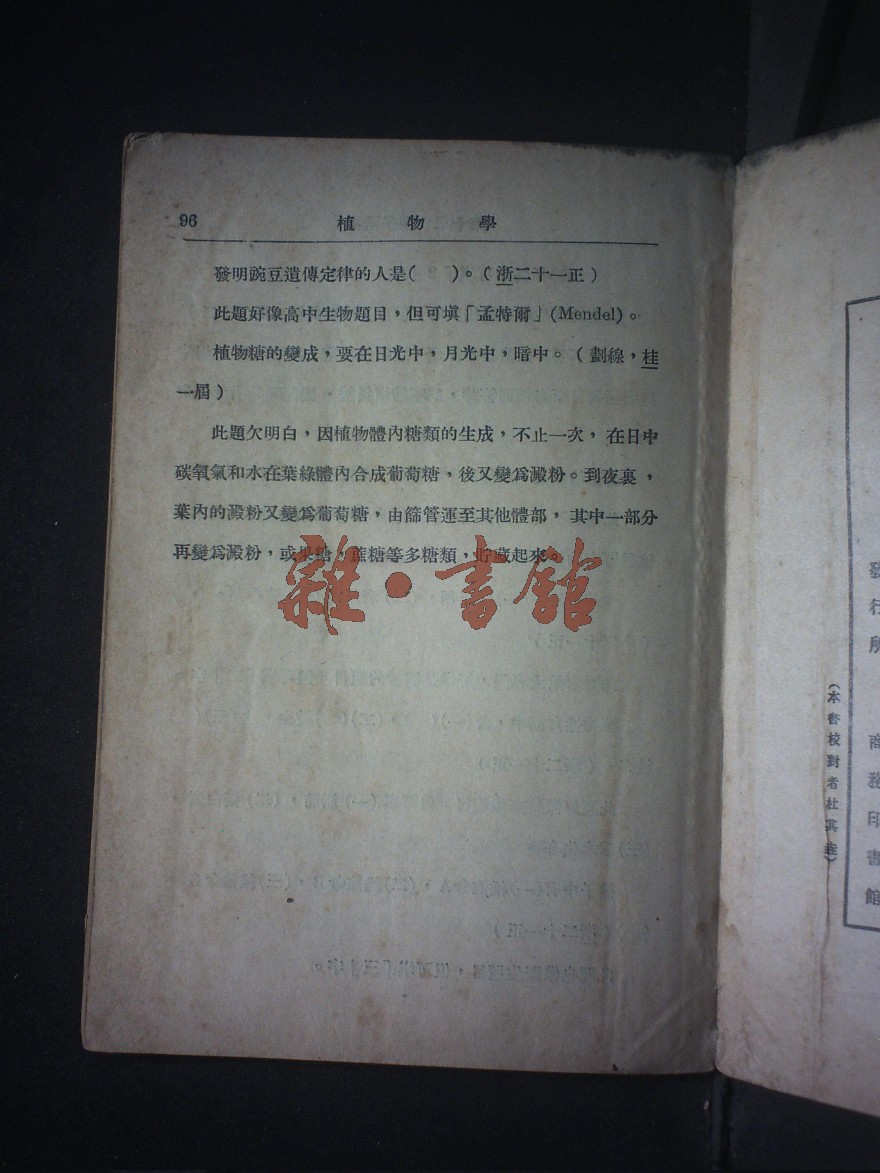 96 植物學
發明豌豆遺傳定律的人是( )。(浙二十一正)
此題好像高中生物題目,但可填「孟特爾」(Mendel)。
植物糖的變成,要在日光中,月光中,暗中。(劃線,桂
一屆)
此題欠明白,因植物體內糖類的生成,不止一次,在日中
碳氧氣和水在葉綠體內合成葡萄糖,後又變爲澱粉。到夜裏,
葉內的澱粉又變爲葡萄糖,由篩管運至其他體部,其中一部分
再變爲澱粉,或果糖,蔗糖等多糖類,貯藏起來。
雜·書館
(本書校對者杜其垚)
發行所 商務印書館